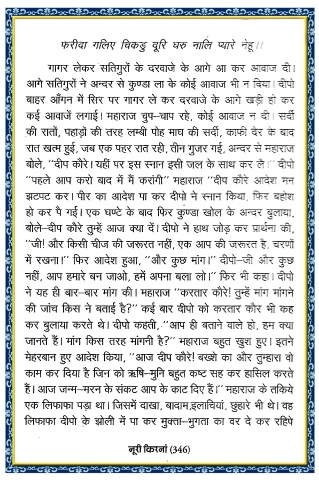 फरीदा गलिए चिकड़ु दूरि घरु नालि प्यारे नेहू।।
गागर लेकर सतिगुरों के दरवाजे के आगे आ कर आवाज दी।
आगे सतिगुरों ने अन्दर से कुण्डा ला के कोई आवाज भी न दिया। दीपो
बाहर आँगन में सिर पर गागर ले कर दरवाजे के आगे खड़ी हो कर
कई आवाजें लगाई। महाराज चुप-चाप रहे, कोई आवाज न दी। सर्दी
की रातों, पहाड़ों की तरह लम्बी पोह माघ की सर्दी, काफी देर के बाद
रात खत्म हुई, जब एक पहर रात रही, तीन गुजर गई, अन्दर से महाराज
बोले, "दीप कौरे। यहीं पर इस स्नान इसी जल के साथ कर ले।" दीपो
"पहले आप करो बाद में मैं करांगी" महाराज "दीप कौरे आदेश मन
झटपट कर। पीर का आदेश पा कर दीपो ने स्नान किया, फिर बहोश
हो कर पै गई। एक घण्टे के बाद फिर कुण्डा खोल के अन्दर बुलाया,
बोले-दीप कौरे तुम्हें आज क्या दें। दीपो ने हाथ जोड़ कर प्रार्थना की,
"जी! और किसी चीज की जरूरत नहीं, एक आप की जरूरत है, चरणों
में रखना।" फिर आदेश हुआ, "और कुछ मांग।" दीपो-जी और कुछ
नहीं, आप हमारे बन जाओ, हमें अपना बला लो।" फिर भी कहा। दीपो
ने यह ही बार-बार मांग की। महाराज "करतार कौरे! तुम्हें मांग मांगने
की जांच किस ने बताई है?" कई बार दीपो को करतार कौर भी कह
कर बुलाया करते थे। दीपो कहती, "आप ही बताने वाले हो, हम क्या
जानते हैं। मांग किस तरह मांगनी है?" महाराज बहुत खुश हुए। इतने
मेहरबान हुए आदेश किया, "आज दीप कौरे! बख्शे का और तुम्हारा वो
काम कर दिया है जिन को ऋषि-मुनि बहुत कष्ट सह कर हासिल करते
हैं। आज जन्म-मरन के संकट आप के काट दिए हैं।" महाराज के तकिये
एक लिफाफा पड़ा था। जिसमें दाखा, बादाम,इलाचियां, छुहारे भी थे। वह
लिफाफा दीपो के झोली में पा कर मुक्ता-भुगता का वर दे कर रहिपे
नूरी किरनां (346)